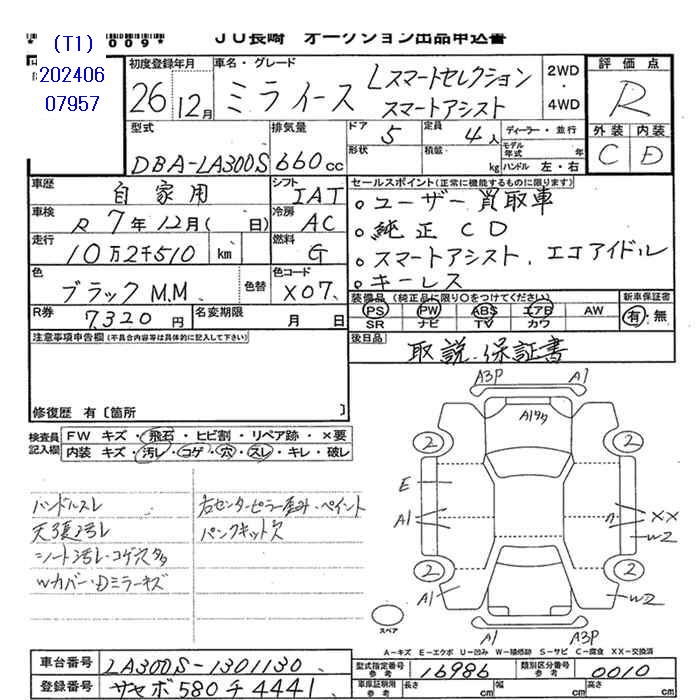 (T1)
202406
07957
*009* JU長崎 オークション出品申込書
初度登録年月 車名・グレード 評価点
26 12月 ミライース Lスマートセレクション 2WD
スマートアシスト ・ 4WD
R
外装 内装
C D
型式 排気量 ドア 定員 ディーラー・並行
DBA-LA300S 660cc 5 4人 モデル年式 年
形状 積載 kg ハンドル 左・右
車歴 自家用 シフト IAT セールスポイント(正常に機能するものに限ります)
車検 R 7年12月( 日) 冷房 AC
走行 10万2千510 km 燃料 G
。ユーザー買取車
。純正CD
。スマートアシスト、エコアイドル
。キーレス
色 ブラックM.M. 色替 色コード X07.
R券 7,320円 名変期限 月 日
装備品(純正品に限り○をつけてください) 新車保証書
PS PW ABS エアB AW 有・無
SR ナビ TV カワ
注意事項申告欄(不具合内容等は具体的に記入して下さい)
後日品 取説.保証書
修復歴 有〔箇所 〕
検査員記入欄 FW キズ・飛石・ヒビ割・リペア跡・×要
内装 キズ・汚レ・コゲ・穴・スレ・キレ・破レ
ハンドルスレ 右センターピラー歪み・ペイント
天張汚レ パンクキット欠
シート汚レ・コゲスタ
Wカバー・Dミラーキズ
A3P A1
A1タク
2 2
E
A1 XX
W2
2 2
A1 W2
スペア
A1 A3P
A-キズ E-エクボ U-凹み W-補修跡 S-サビ C-腐食 XX-交換済
車台番号 LA300S-1301130 型式指定番号 参考 16986 類別区分番号 参考 0010
登録番号 サセボ580チ4441 車庫証明用 参考 長さ cm 幅 cm 高さ cm